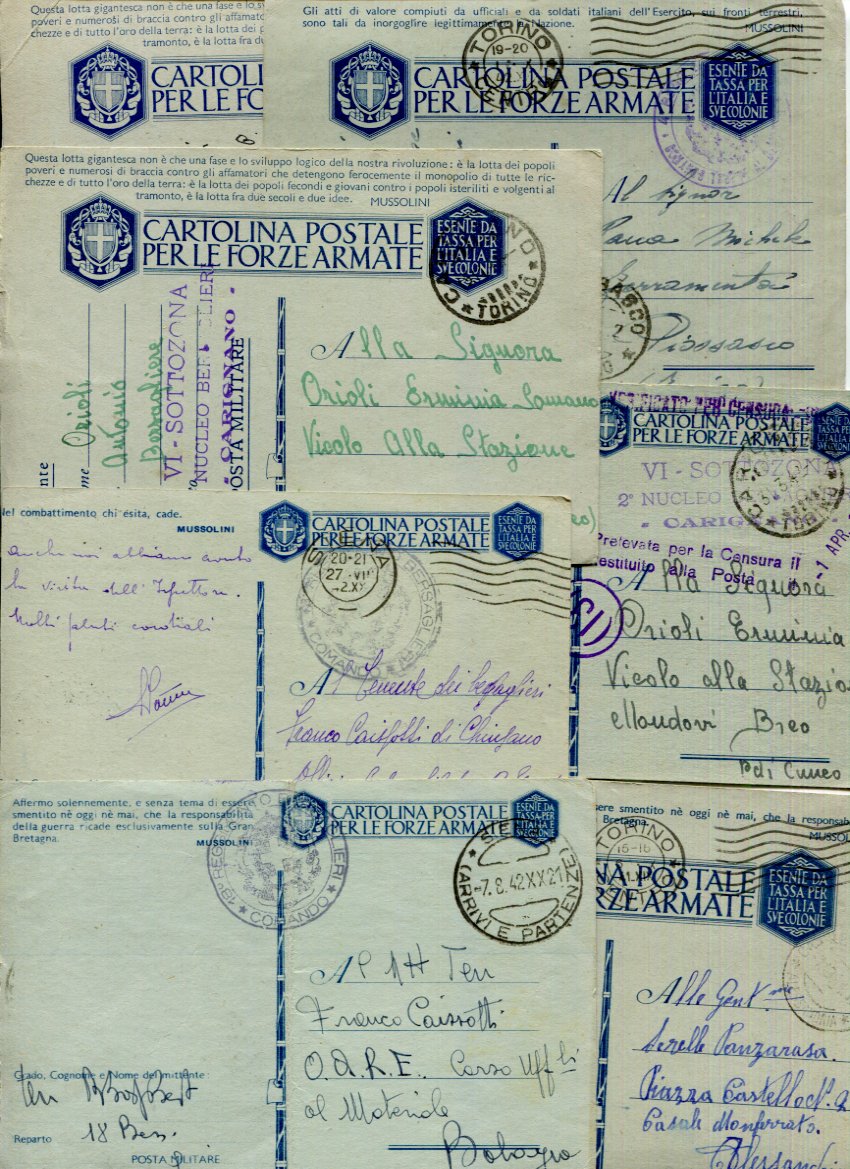 Questa lotta gigantesca non è che una fase e lo sv
poveri e numerosi di braccia contro gli affamato
chezze e di tutto l'oro della terra: è la lotta dei p
tramonto, è la lotta fra du
CARTOLINA
PER LE FORZE
Gli atti di valore compiuti da ufficiali e da soldati italiani dell'Esercito, sui fronti terrestri,
sono tali da inorgoglire legittimamente la Nazione.
MUSSOLINI
TORINO
19-20
CARTOLINA POSTALE
PER LE FORZE ARMATE
ESENTE DA
TASSA PER
L'ITALIA E
SVE COLONIE
Al signor
Michele
Piossasco
Questa lotta gigantesca non è che una fase e lo sviluppo logico della nostra rivoluzione: è la lotta dei popoli
poveri e numerosi di braccia contro gli affamatori che detengono ferocemente il monopolio di tutte le ric-
chezze e di tutto l'oro della terra: è la lotta dei popoli fecondi e giovani contro i popoli isteriliti e volgenti al
tramonto, è la lotta fra due secoli e due idee.
MUSSOLINI
CARTOLINA POSTALE
PER LE FORZE ARMATE
ESENTE DA
TASSA PER
L'ITALIA E
SVE COLONIE
TORINO
Orioli
Antonio
Bersagliere
VI - SOTTOZONA
NUCLEO BERSAGLIERI
- CARIGNANO -
POSTA MILITARE
Alla Signora
Orioli Erminia Romano
Vicolo Alla Stazione
BASCO
VERIFICATO PER CENSURA
CARTOLINA POSTALE
PER LE FORZE ARMATE
VI - SOTTOZONA
2° NUCLEO
- CARIG
TORINO
Prelevata per la Censura il
restituito alla Posta
-1 APR.
Alla Signora
Orioli Erminia
Vicolo alla Stazio
Mondovì Breo
P di Cuneo
Nel combattimento chi esita, cade.
MUSSOLINI
anche noi abbiamo avuto
la visita dell'Ispettore.
Molti saluti cordiali
CARTOLINA POSTALE
PER LE FORZE ARMATE
ESENTE DA
TASSA PER
L'ITALIA E
SVE COLONIE
SIENA
20-21
27 - VII
42 XX
BERSAGLIERI
COMANDO
Al Tenente dei bersaglieri
Franco Caissotti di Chiusano
Affermo solennemente, e senza tema di essere
smentito nè oggi nè mai, che la responsabilità
della guerra ricade esclusivamente sulla Gran
Bretagna.
MUSSOLINI
18° REGG
BERSAGLIERI
COMANDO
CARTOLINA POSTALE
PER LE FORZE ARMATE
ESENTE DA
TASSA PER
L'ITALIA E
SVE COLONIE
SIENA
-7.8.42XX21
(ARRIVI E PARTENZE)
Al NH Ten
Franco Caissotti
O.A.R.E. Corso Uff li
al Materiale
Bologna
Grado, Cognome e Nome del mittente:
Ten
Reparto
18 Bers.
POSTA MILITARE
9
ere smentito nè oggi nè mai, che la responsab
Bretagna.
MUSSO
TORINO
15-16
NA POSTALE
RZE ARMATE
ESENTE DA
TASSA PER
L'ITALIA E
SVE COLONIE
Alle Gent.me
Sorelle Panzarasa
Piazza Castello N. 2
Casale Monferrato.
Alessandri